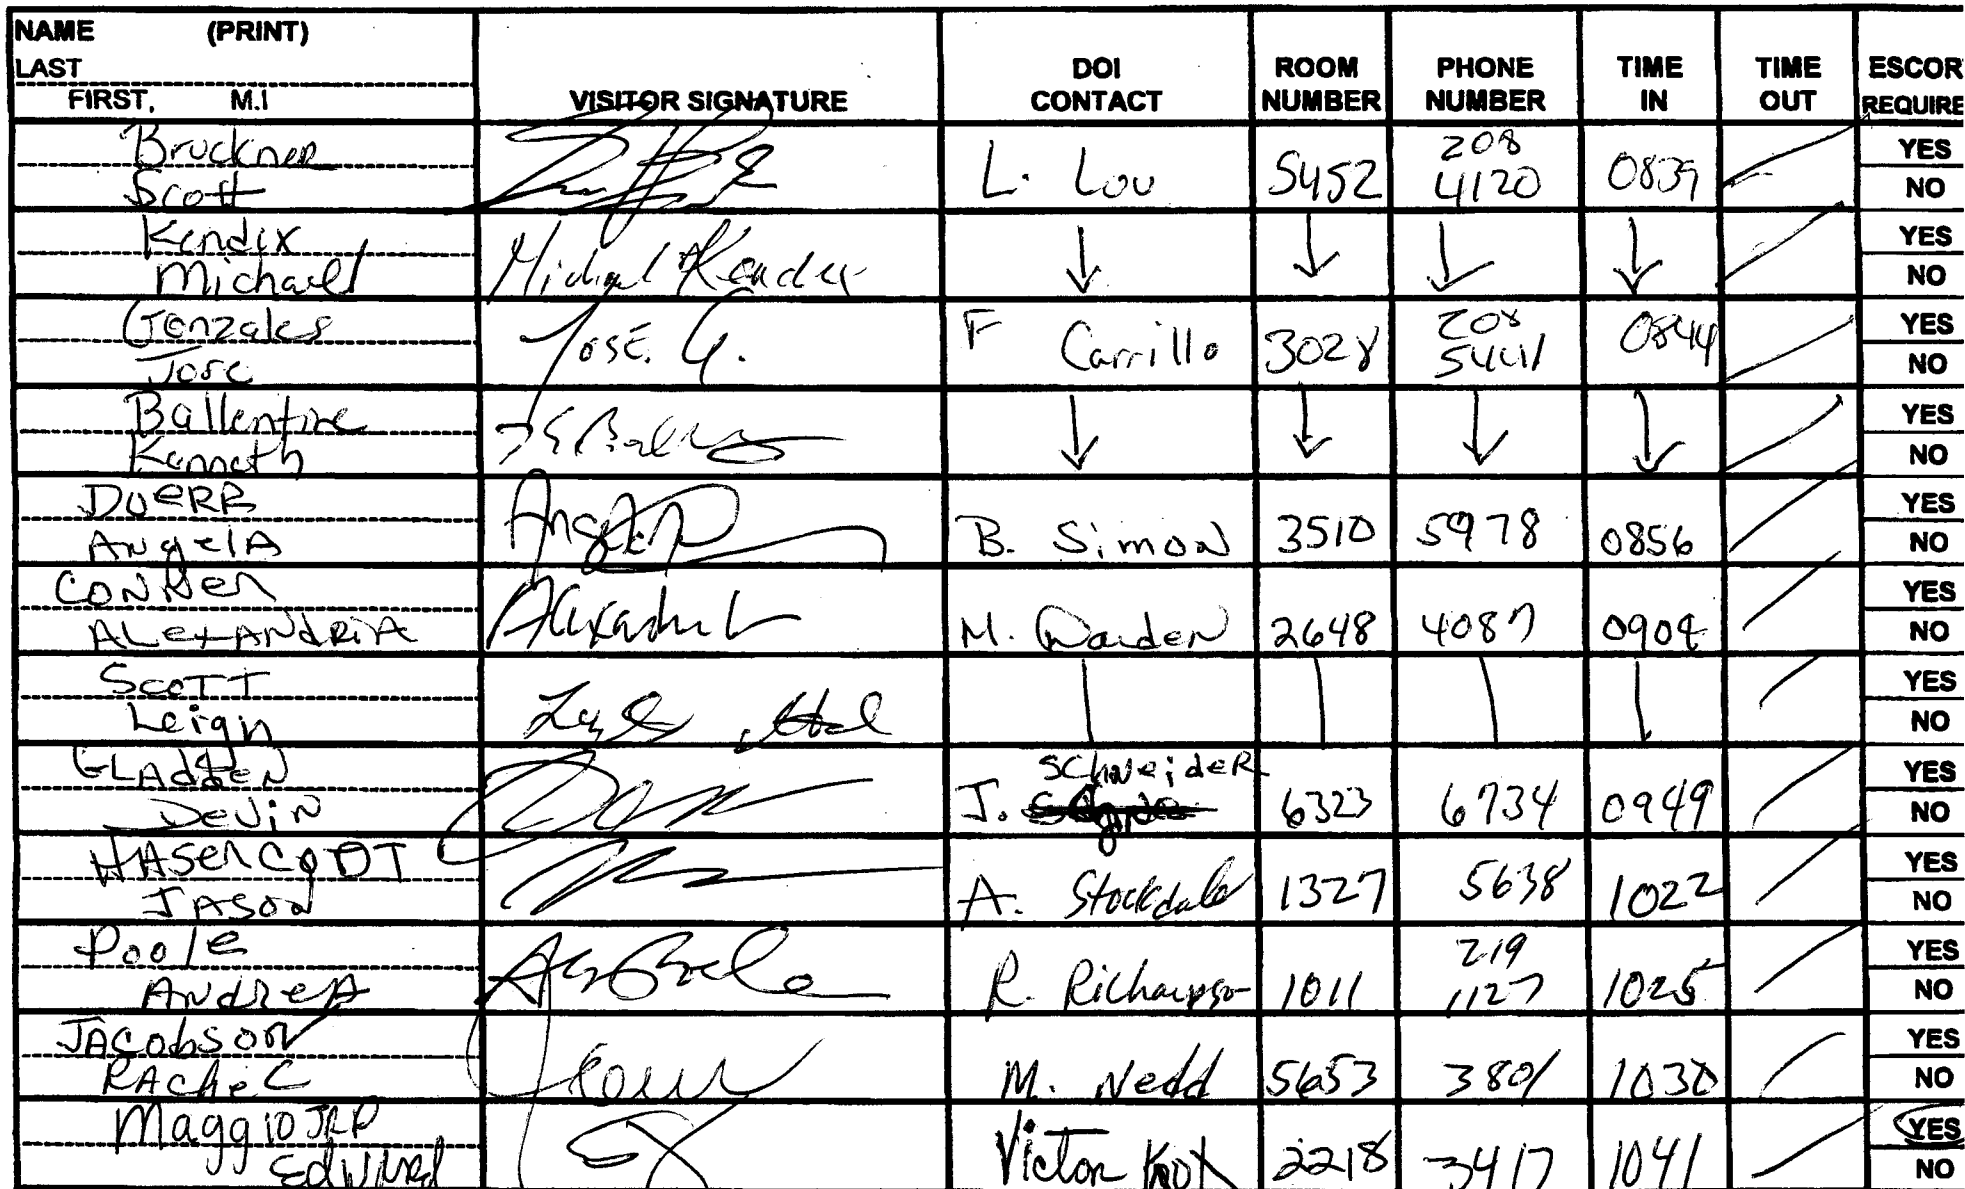 NAME (PRINT)
LAST
FIRST, M.I
VISITOR SIGNATURE
DOI CONTACT
ROOM NUMBER
PHONE NUMBER
TIME IN
TIME OUT
ESCOR
REQUIRE
Bruckner
Scott
L. Lou 5452 208 4120 0839 YES NO
Kendix
Michael
Michael Kendix
↓ ↓ ↓ ↓ YES NO
Gonzales
Jose
Jose. G.
F Carrillo 3028 208 5441 0844 YES NO
Ballentine
Kenneth
↓ ↓ ↓ ↓ YES NO
DUERR
AngelA
B. Simon 3510 5978 0856 YES NO
CONNer
ALexANDRiA
M. 2648 4087 YES NO
Scott
Leigh
YES NO
GLAdden
Devin
J. SCHNeideR 6323 6734 0949 YES NO
JASON
A. Stockdale 1327 5638 1022 YES NO
Poole
AndreA
R. Richardson 1011 219 1127 1025 YES NO
JACobSON
RACheL
M. Nedd 5653 3801 1030 YES NO
Maggio
Edward
Victor Knox 2218 3417 1041 YES NO